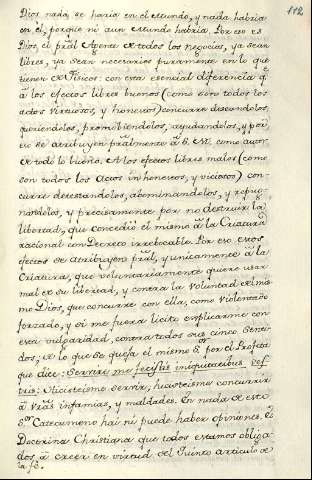 112
Dios nada se haria en el mundo, y nada habria
en èl, porque ni aun mundo habria. Por eso es
Dios el pral Agente de todos los negocios, ya sean
libres, ya sean necesarios puramente en lo que
tienen de Fisicos: con esta esencial diferencia q.
à los efectos libres buenos (como son todos los
actos virtuosos, y honestos) concurre deseandolos,
queriendolos, promoviendolos, ayudandolos, y por
eso se atribuyen pralmente à S. M. como autor
de todo lo bueno. A los efectos libres malos (como
son todos los actos inhonestos, y viciosos) con-
curre detestandolos, abominandolos, y repug-
nandolos, y precisamente por no destruir la
libertad, que concediò el mismo à la Criatura
racional con Decreto irrebocable. Por eso estos
efectos se atribuyen pral, y unicamente à la
Criatura, que voluntariamente quiere usar
mal de su libertad, y contra la voluntad del mis-
mo Dios, que concurre con ella, como violentado
forzado, y si me fuera licito explicarme con
esta vulgaridad, contra todos sus cinco senti-
dos; de lo que se queja el mismo S.or por el Profeta
que dice: Servire me fecistis iniquitatibus ves-
tris: Hicisteisme servir, hicisteisme concurrir
à vras infamias, y maldades. En nada de esto
S.or Catecumeno hai ni puede haber opiniones. Es
Doctrina Christiana que todos estamos obliga-
dos à creer en virtud del Quinto articulo de
la fè.